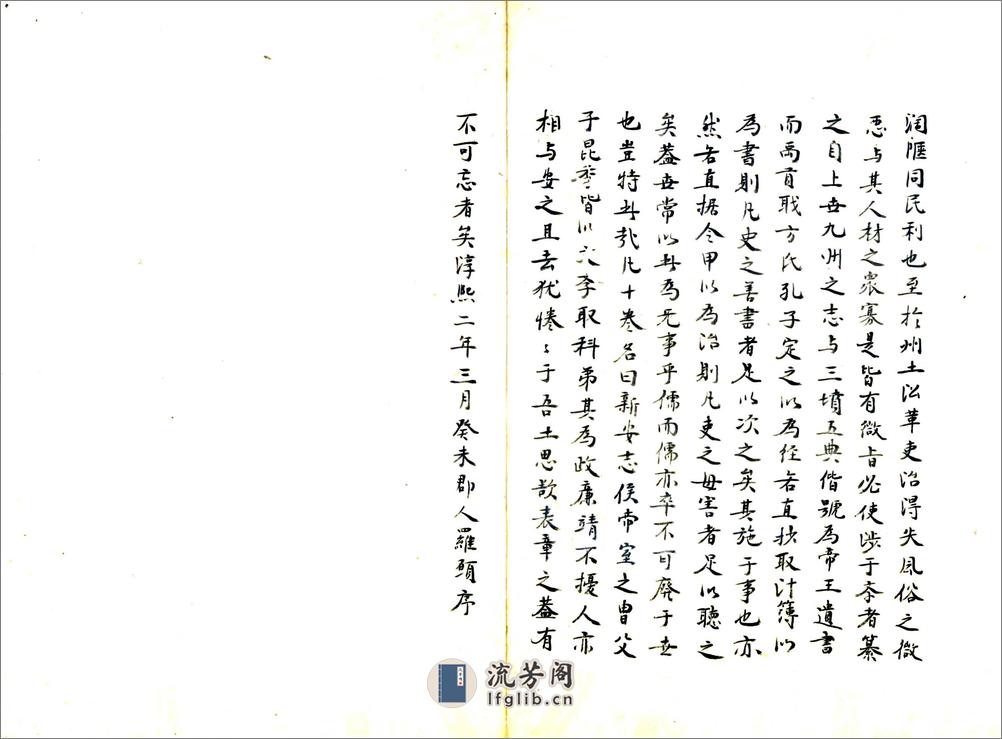 闊陿同民利也至於州土沿革吏治得失風俗之微
惡与其人材之衆寡是皆有微旨必使涉于李者纂
之自上世九州之志与三墳五典偕號為帝王遺書
而禹貢職方氏孔子定之以為経若直抄取计簿以
為書則凡史之善書者足以次之矣其施于事也亦
然若直据令甲以為治則凡吏之毋害者足以聽之
矣蓋世常以此為无事乎儒而儒亦卒不可廢于世
也豈特此哉凡十卷名曰新安志侯帝室之曽父
子昆季皆以文李取科第其為政廉靖不擾人亦
相与安之且去犹惓〻于吾土思欲表章之蓋有
不可忘者矣淳熙二年三月癸未郡人羅頋序
流芳阁
lfglib.cn